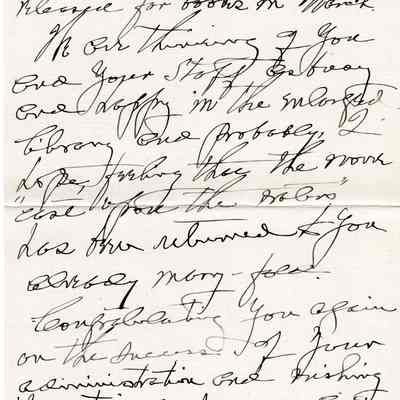 released for books in March.
We are thinking of you
and your staff as busy
and happy in the enlarged
library and probably, I
hope, feeling that the
"cast upon the waters"
has been returned to you
already many-fold.
Congratulating you again
on the success of your
administration and wishing